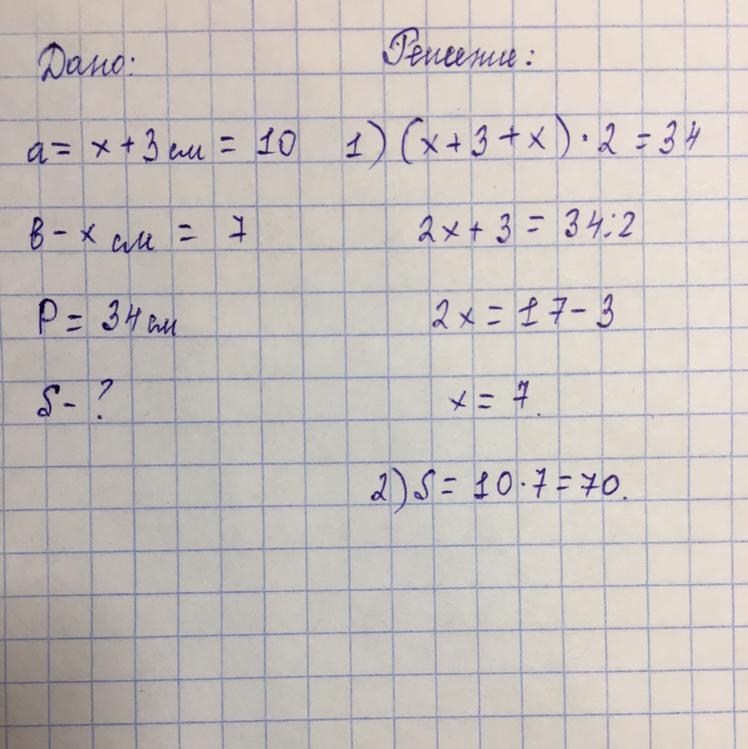 Дано:
Решение:
a = x + 3 см = 10
1) (x + 3 + x) · 2 = 34
в - x см = 7
2x + 3 = 34:2
P = 34 см
2x = 17 - 3
S - ?
x = 7.
2) S = 10 · 7 = 70.